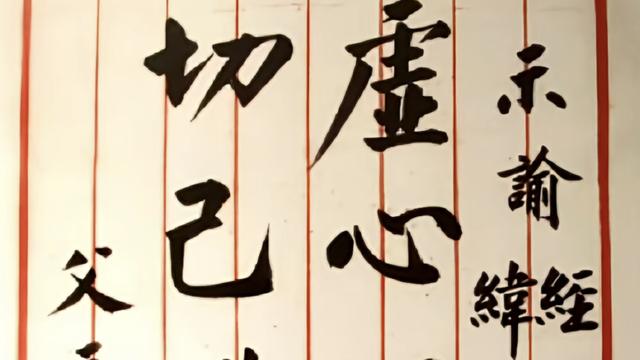 示諭經緯
虚心
切己
父